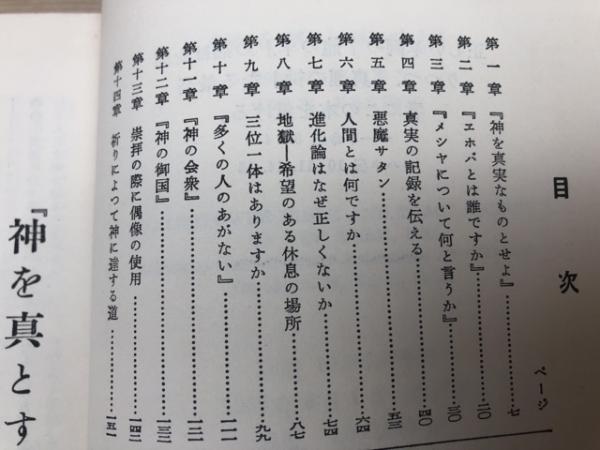 目次
ページ
第一章 『神を真実なものとせよ』…………七
第二章 『エホバとは誰ですか』…………二〇
第三章 『メシヤについて何と言うか』…………三〇
第四章 真実の記録を伝える…………四〇
第五章 悪魔サタン…………五三
第六章 人間とは何ですか…………六四
第七章 進化論はなぜ正しくないか…………七四
第八章 地獄―希望のある休息の場所…………八七
第九章 三位一体はありますか…………九九
第十章 『多くの人のあがない』…………一一一
第十一章 『神の会衆』…………一二二
第十二章 『神の御国』…………一三二
第十三章 崇拝の際に偶像の使用…………一四二
第十四章 祈りによつて神に達する道…………一五一
『神を真とす